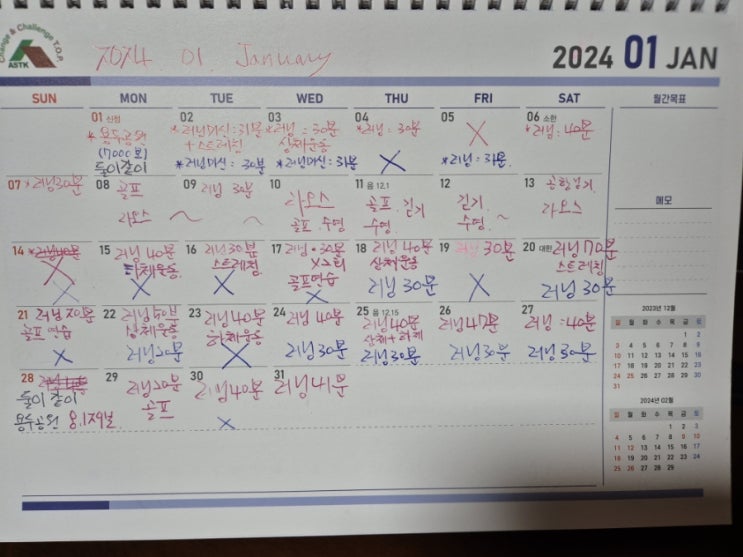 Change & Challenge T.O.P.
ASTK
2024 01. January
2024 01 JAN
SUN MON TUE WED THU FRI SAT 월간목표
01 신정
*용두공원
(7000보)
둘이같이
02
*러닝머신:31분
+스트레칭
*러닝머신:30분
03
*러닝:30분
상체운동
*러닝머신:31분
04
*러닝:30분
X
05
X
*러닝:31분.
06 소한
*러닝:40분
07 *러닝30분
08
골프
라오스 ~
09
러닝 30분
~
10
라오스
골프.수영
11 음 12.1
골프.걷기
수영.
12
걷기
수영. ~
13
공항걷기
라오스
메모
14
X
X
15
러닝 40분
하체운동
X
16
러닝30분
스트레칭
X
17
러닝.30분
X2회
골프연습
X
18
러닝 40분
상체운동
러닝 30분
19
러닝 30분
X
20 대한
러닝70분
스트레칭
러닝 30분
21
러닝 20분
골프연습
X
22
러닝50분
상체운동
러닝20분
23
러닝40분
하체운동
X
24
러닝 40분
러닝30분
25 음 12.15
러닝40분
상체+하체
러닝30분
26
러닝47분
러닝30분
27
러닝:40분
러닝30분
28
둘이같이
용두공원 8.1키로
29
러닝20분
골프
30
러닝40분
X
31
러닝41분
2023년 12월
일 월 화 수 목 금 토
1 2
3 4 5 6 7 8 9
10 11 12 13 14 15 16
17 18 19 20 21 22 23
24 25 26 27 28 29 30
31
2024년 02월
일 월 화 수 목 금 토
1 2 3
4 5 6 7 8 9 10
11 12 13 14 15 16 17
18 19 20 21 22 23 24
25 26 27 28 29